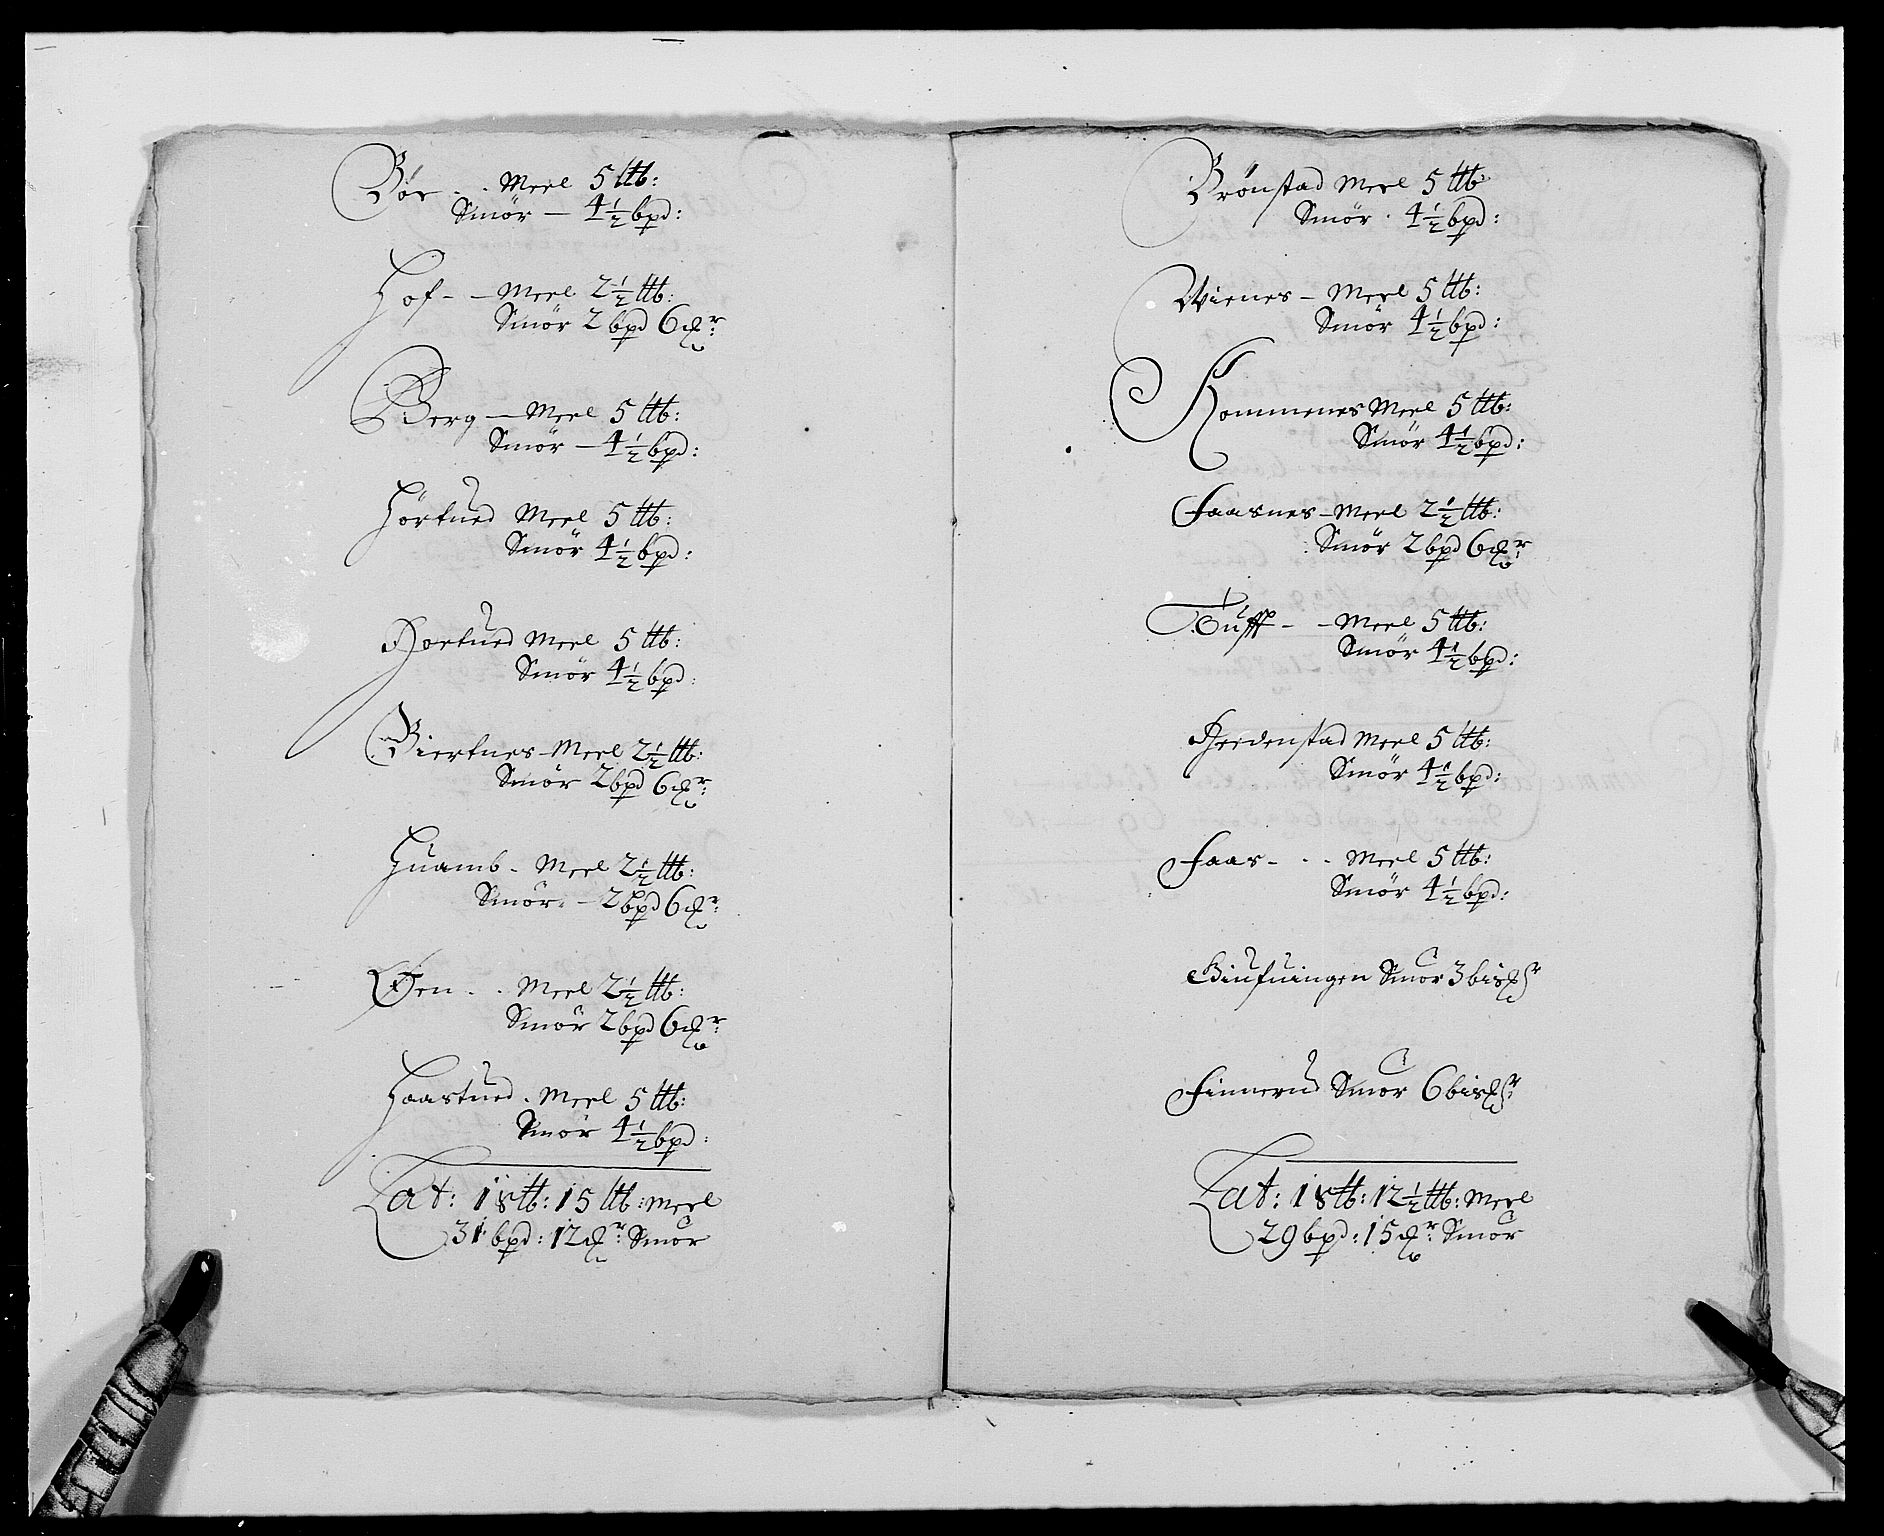 Bøe - - Meel 5 ltb:
Smör — 4½ bpd:
Hof - - Meel 2½ ltb:
Smör 2 bpd 6 mr:
Berg — Meel 5 ltb:
Smör — 4½ bpd:
Hörtued Meel 5 ltb:
Smör 4½ bpd:
Hortued Meel 5 ltb:
Smör 4½ bpd:
Biertnes - Meel 2½ ltb:
Smör 2 bpd 6 mr:
Huamb - Meel 2½ ltb:
Smör - 2 bpd 6 mr:
Øen - - Meel 2½ ltb:
Smör 2 bpd 6 mr:
Haastued - Meel 5 ltb:
Smör 4½ bpd:
Lat: 1 stb: 15 ltb: Meel
31 bpd: 12 mr: Smör
Brönstad Meel 5 ltb
Smör - 4½ bpd:
Wienes - Meel 5 ltb:
Smör 4½ bpd:
Kommenes Meel 5 ltb:
Smör 4½ bpd:
Faasnes - Meel 2½ ltb:
Smör 2 bpd 6 mr:
Tufft - - Meel 5 ltb:
Smör 4½ bpd:
Heidenstad Meel 5 ltb:
Smör 4½ bpd:
Faas - - - Meel 5 ltb:
Smör 4½ bpd:
Smör 3 bismr
Finnerud Smör 6 bismr
Lat: 1 stb: 12½ ltb: Meel
29 bpd: 15 mr: Smör